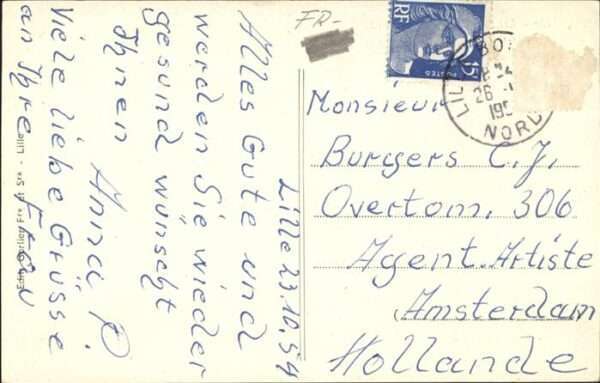 FR-
Lille 23.10.54
Alles Gute und
werden Sie wieder
gesund wünscht
Ihnen
Anna P.
Viele liebe Grüsse
an Ihre Frau
Lille
RF
15F
POSTES
LILLE
NORD
Monsieur
Burgers C.J.
Overtom, 306
Agent.Artiste
Amsterdam
Hollande